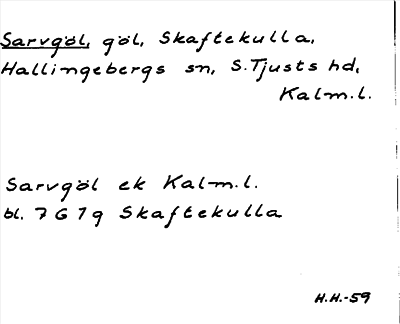 Sarvgöl, göl, Skaftekulla,
Hallingebergs sn, S. Tjusts hd,
Kalm.l.
Sarvgöl ek Kalm.l.
bl. 7 G 7 g Skaftekulla
H.H.-59